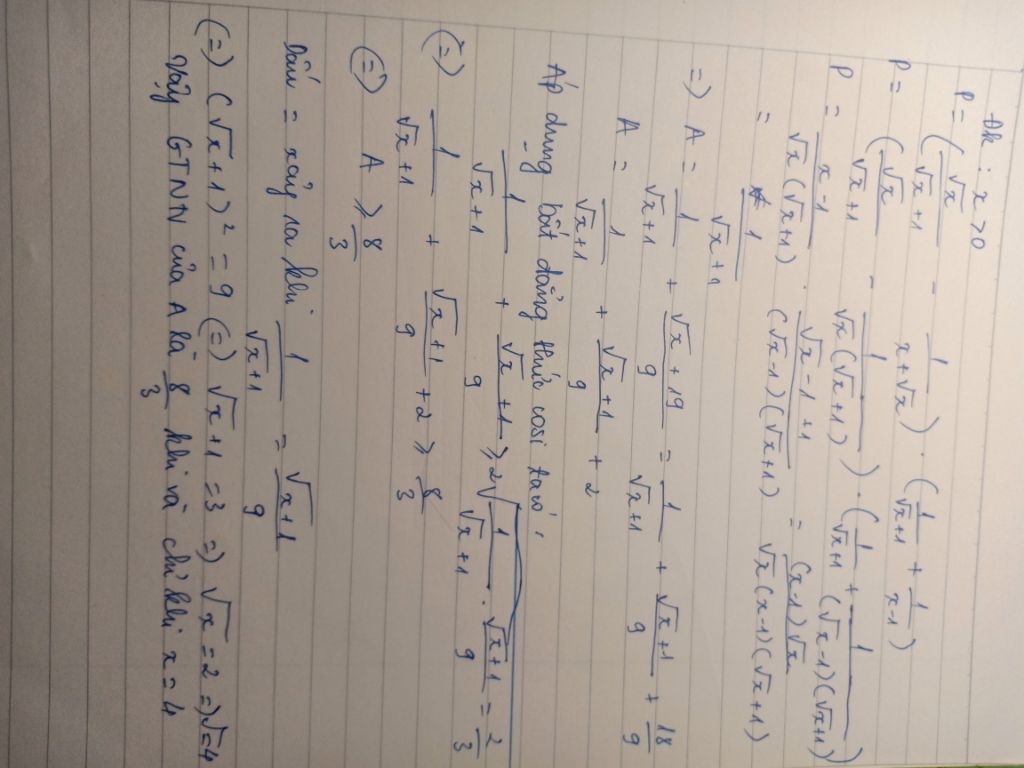 Đk : x > 0
P = ( √x / (√x + 1) - 1 / (x + √x) ) . ( 1 / (√x + 1) + 1 / (x - 1) )
P = ( √x / (√x + 1) - 1 / (√x(√x + 1)) ) . ( 1 / (√x + 1) + 1 / ((√x - 1)(√x + 1)) )
P = (x - 1) / (√x(√x + 1)) . (√x - 1 + 1) / ((√x - 1)(√x + 1)) = (x - 1)√x / (√x(x - 1)(√x + 1))
= 1 / (√x + 1)
=) A = 1 / (√x + 1) + (√x + 19) / 9 = 1 / (√x + 1) + (√x + 1) / 9 + 18 / 9
A = 1 / (√x + 1) + (√x + 1) / 9 + 2
Áp dụng bất đẳng thức cosi ta có :
1 / (√x + 1) + (√x + 1) / 9 ≥ 2√( 1 / (√x + 1) . (√x + 1) / 9 ) = 2 / 3
(=) 1 / (√x + 1) + (√x + 1) / 9 + 2 ≥ 8 / 3
(=) A ≥ 8 / 3
Dấu = xảy ra khi . 1 / (√x + 1) = (√x + 1) / 9
(=) (√x + 1)² = 9 (=) √x + 1 = 3 =) √x = 2 =) √=4
Vậy GTNN của A là 8 / 3 khi và chỉ khi x = 4